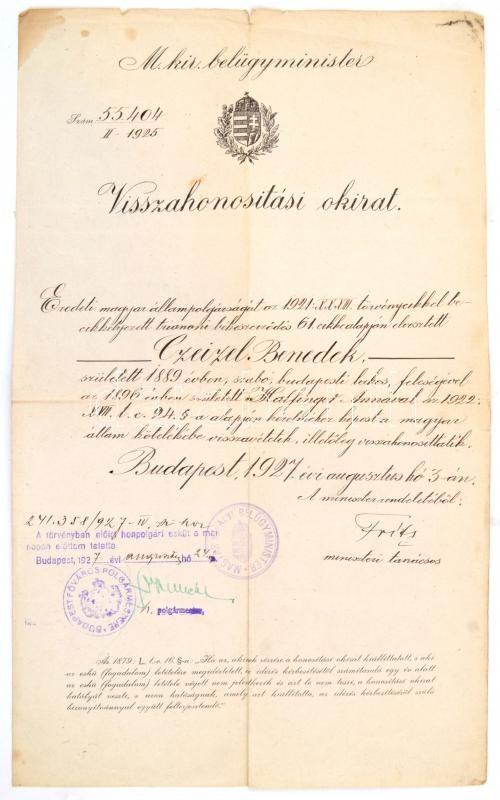 M. kir. belügyminister
Szám 55.404
III - 1925
Visszahonosítási okirat.
Eredeti magyar állampolgárságát az 1921: XXXIII. törvénycikkel be-
cikkelyezett trianoni békeszerződés 61 cikke alapján elvesztett
Czeizel Benedek,
született 1889 évben, szabó, budapesti lakos, feleségével
az 1896 évben született Halfinger Annával az 1922:
XVII. t. c. 24. § a alapján kérelméhez képest a magyar
állam kötelékébe visszavétetett, illetőleg visszahonosíttatik.
Budapest, 1927. évi augusztus hó 3-án.
A miniszter rendeletéből:
241.358/927-IV.
A törvényben előírt honpolgári esküt a mai
napon előttem letette
Budapest, 1927 évi augusztus hó 24
Fritz
miniszteri tanácsos
MAGYAR KIRÁLYI BELÜGYMINISTER
BUDAPEST FŐVÁROS POLGÁRMESTERE
h. polgármester,
Az 1879: L. t.-c. 16. §-a: „Ha az, akinek részére a honosítási okirat kiállíttatott, s aki
az eskü (fogadalom) letételére megidéztetett az idézés kézbesítésétől számítandó egy év alatt
az eskü (fogadalom) letétele végett nem jelentkezik és azt le nem teszi, a honosítási okirat
hatályát veszti, s azon hatóságnak, amely azt kiállította, az idézés kézbesítéséről szóló
bizonyítvánnyal együtt felterjesztendő."